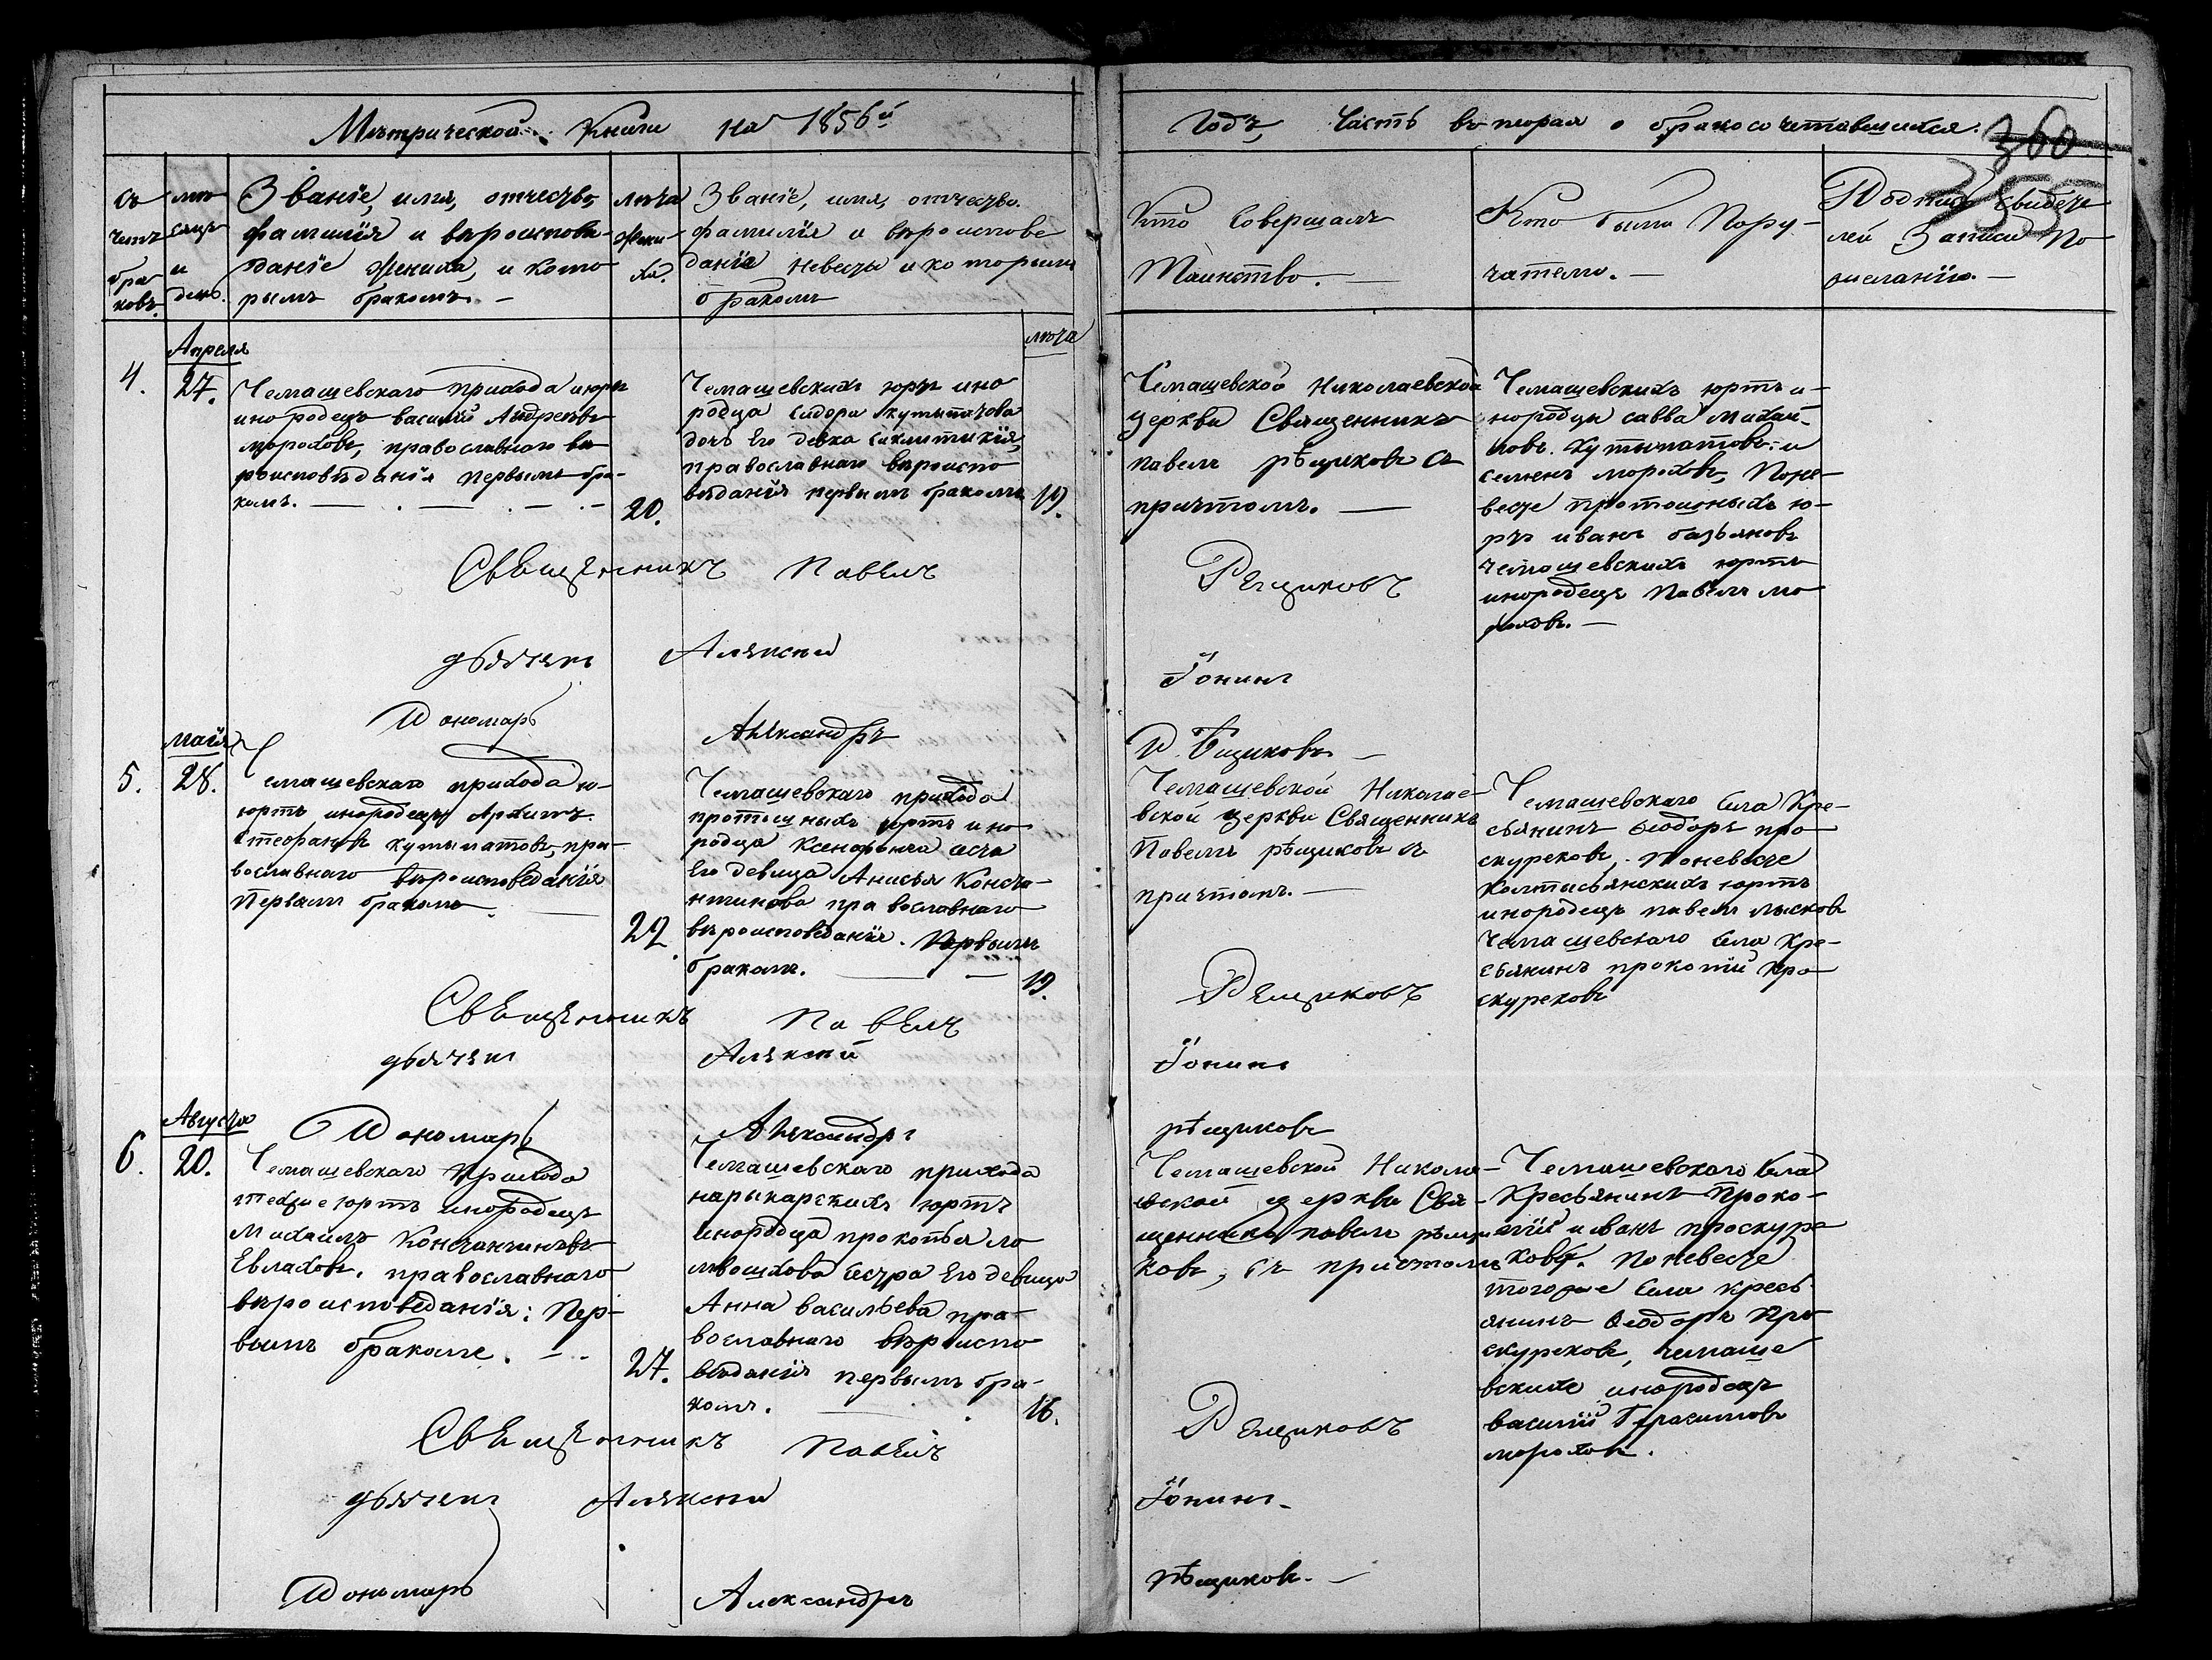 Метрической Книги на 1856й
Годъ, Часть вторая о бракосочетавшихся.
360
355
Счетъ браковъ.
Месяцъ и день.
Званіе, имя, отчество,
фамилія и вероиспове-
даніе жениха, и кото-
рымъ бракомъ. —
лета жени-
ха.
Званіе, имя, отчество.
фамилія и вѣроиспове
данія невесты и которымъ
бракомъ
лета
Кто Совершалъ
Таинство. —
Кто были Пору-
чатели. —
Подпись свидете
лей Записи По
желанію. —
4.
Апреля
27.
Чемашевскаго прихода юртъ
инородецъ василій Андреевъ
мороховъ, православнаго ве
роисповѣданія первымъ бра-
комъ. —
20.
Чемашевскихъ юртъ ино
родца Сидора
дочь Его девка
православнаго вѣроиспо
вѣданія первымъ бракомъ
19.
Чемашевской Николаевской
церкви Священникъ
павелъ рѣщиковъ съ
причтомъ. —
Чемашевскихъ юртъ и-
нородцы савва михай-
ловъ Кутыматовъ: и
семенъ мороховъ, Поне-
весте протошныхъ ю-
ртъ иванъ
чемашевскихъ юртъ
инородецъ Павелъ мо
роховъ. —
Свещенникъ Павелъ Рещиковъ
дьячекъ Алексей Іонинъ
Пономарь Александръ Рѣщиковъ —
5.
Маія
28.
Чемашевскаго прихода ю-
юртъ инородецъ Архипъ
Стефановъ кутыматовъ, пра-
вославнаго вѣроисповеданія
Первымъ бракомъ —
22.
Чемашевскаго прихода
протошныхъ юртъ ино
родца Ксенофонта сестра
Его девица Анисья Конста-
нтинова православнаго
вѣроисповеданія. Первымъ
бракомъ. —
19.
Чемашевской Николае-
вской церкви Священникъ
Павелъ рѣщиковъ съ
причтомъ. —
Чемашевскаго Села Кре-
сьянинъ Ѳеодоръ про
скурековъ, Поневесте
Калтысьянскихъ юртъ
инородецъ павелъ лысковъ
Чемашевскаго Села Кре-
сьянинъ прокопій про
скурековъ
Свещенникъ Павелъ Рещиковъ
дьячекъ Алексей Іонинъ
Пономарь Александръ рѣщиковъ
6.
Августа
20.
Чемашевскаго Прихода
юртъ инородецъ
Михаилъ Константиновъ
Евлаховъ. православнаго
вѣроисповеданія: Пер-
вымъ бракомъ. —
27.
Чемашевскаго прихода
нарыкарскихъ юртъ
инородца прокопья
сестра Его девица
Анна васильева пра-
вославнаго вѣроиспо
вѣданія первымъ бра-
комъ. —
16.
Чемашевской Никола-
вской церкви Свя-
щенникъ павелъ рѣщи
ковъ, съ причтомъ
Чемашевскаго Села
Кресьянинъ Проко-
пій иванъ проскуре
ковы. Поневесте
тогоже Села кресь
янинъ Ѳеодоръ Про
скурековъ, чемаше
вскихъ инородецъ
василій Герасимовъ
мороховъ.
Свещенникъ Павелъ Рещиковъ
дьячекъ Алексей Іонинъ.
Пономарь Александръ рѣщиковъ. —